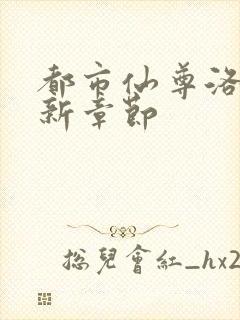 都市仙尊洛
新章節
總兒會紅_hx2